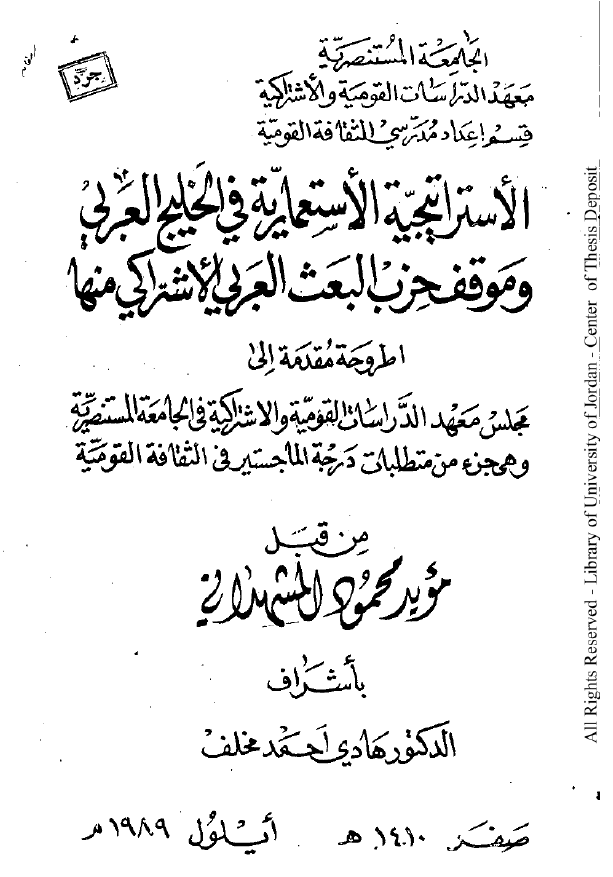 الجامعة المستنصرية
معهد الدراسات القومية والأشتراكية
قسم إعداد مدرسي الثقافة القومية
جرد
الأستراتيجية الأستعمارية في الخليج العربي
وموقف حزب البعث العربي الأشتراكي منها
اطروحة مقدمة إلى
مجلس معهد الدراسات القومية والاشتراكية في الجامعة المستنصرية
وهي جزء من متطلبات درجة الماجستير في الثقافة القومية
من قبل
مؤيد محمود المشهداني
بأشراف
الدكتور هادي احمد مخلف
صفر ١٤١٠ هـ أيلول ١٩٨٩ م
All Rights Reserved - Library of University of Jordan - Center of Thesis Deposit